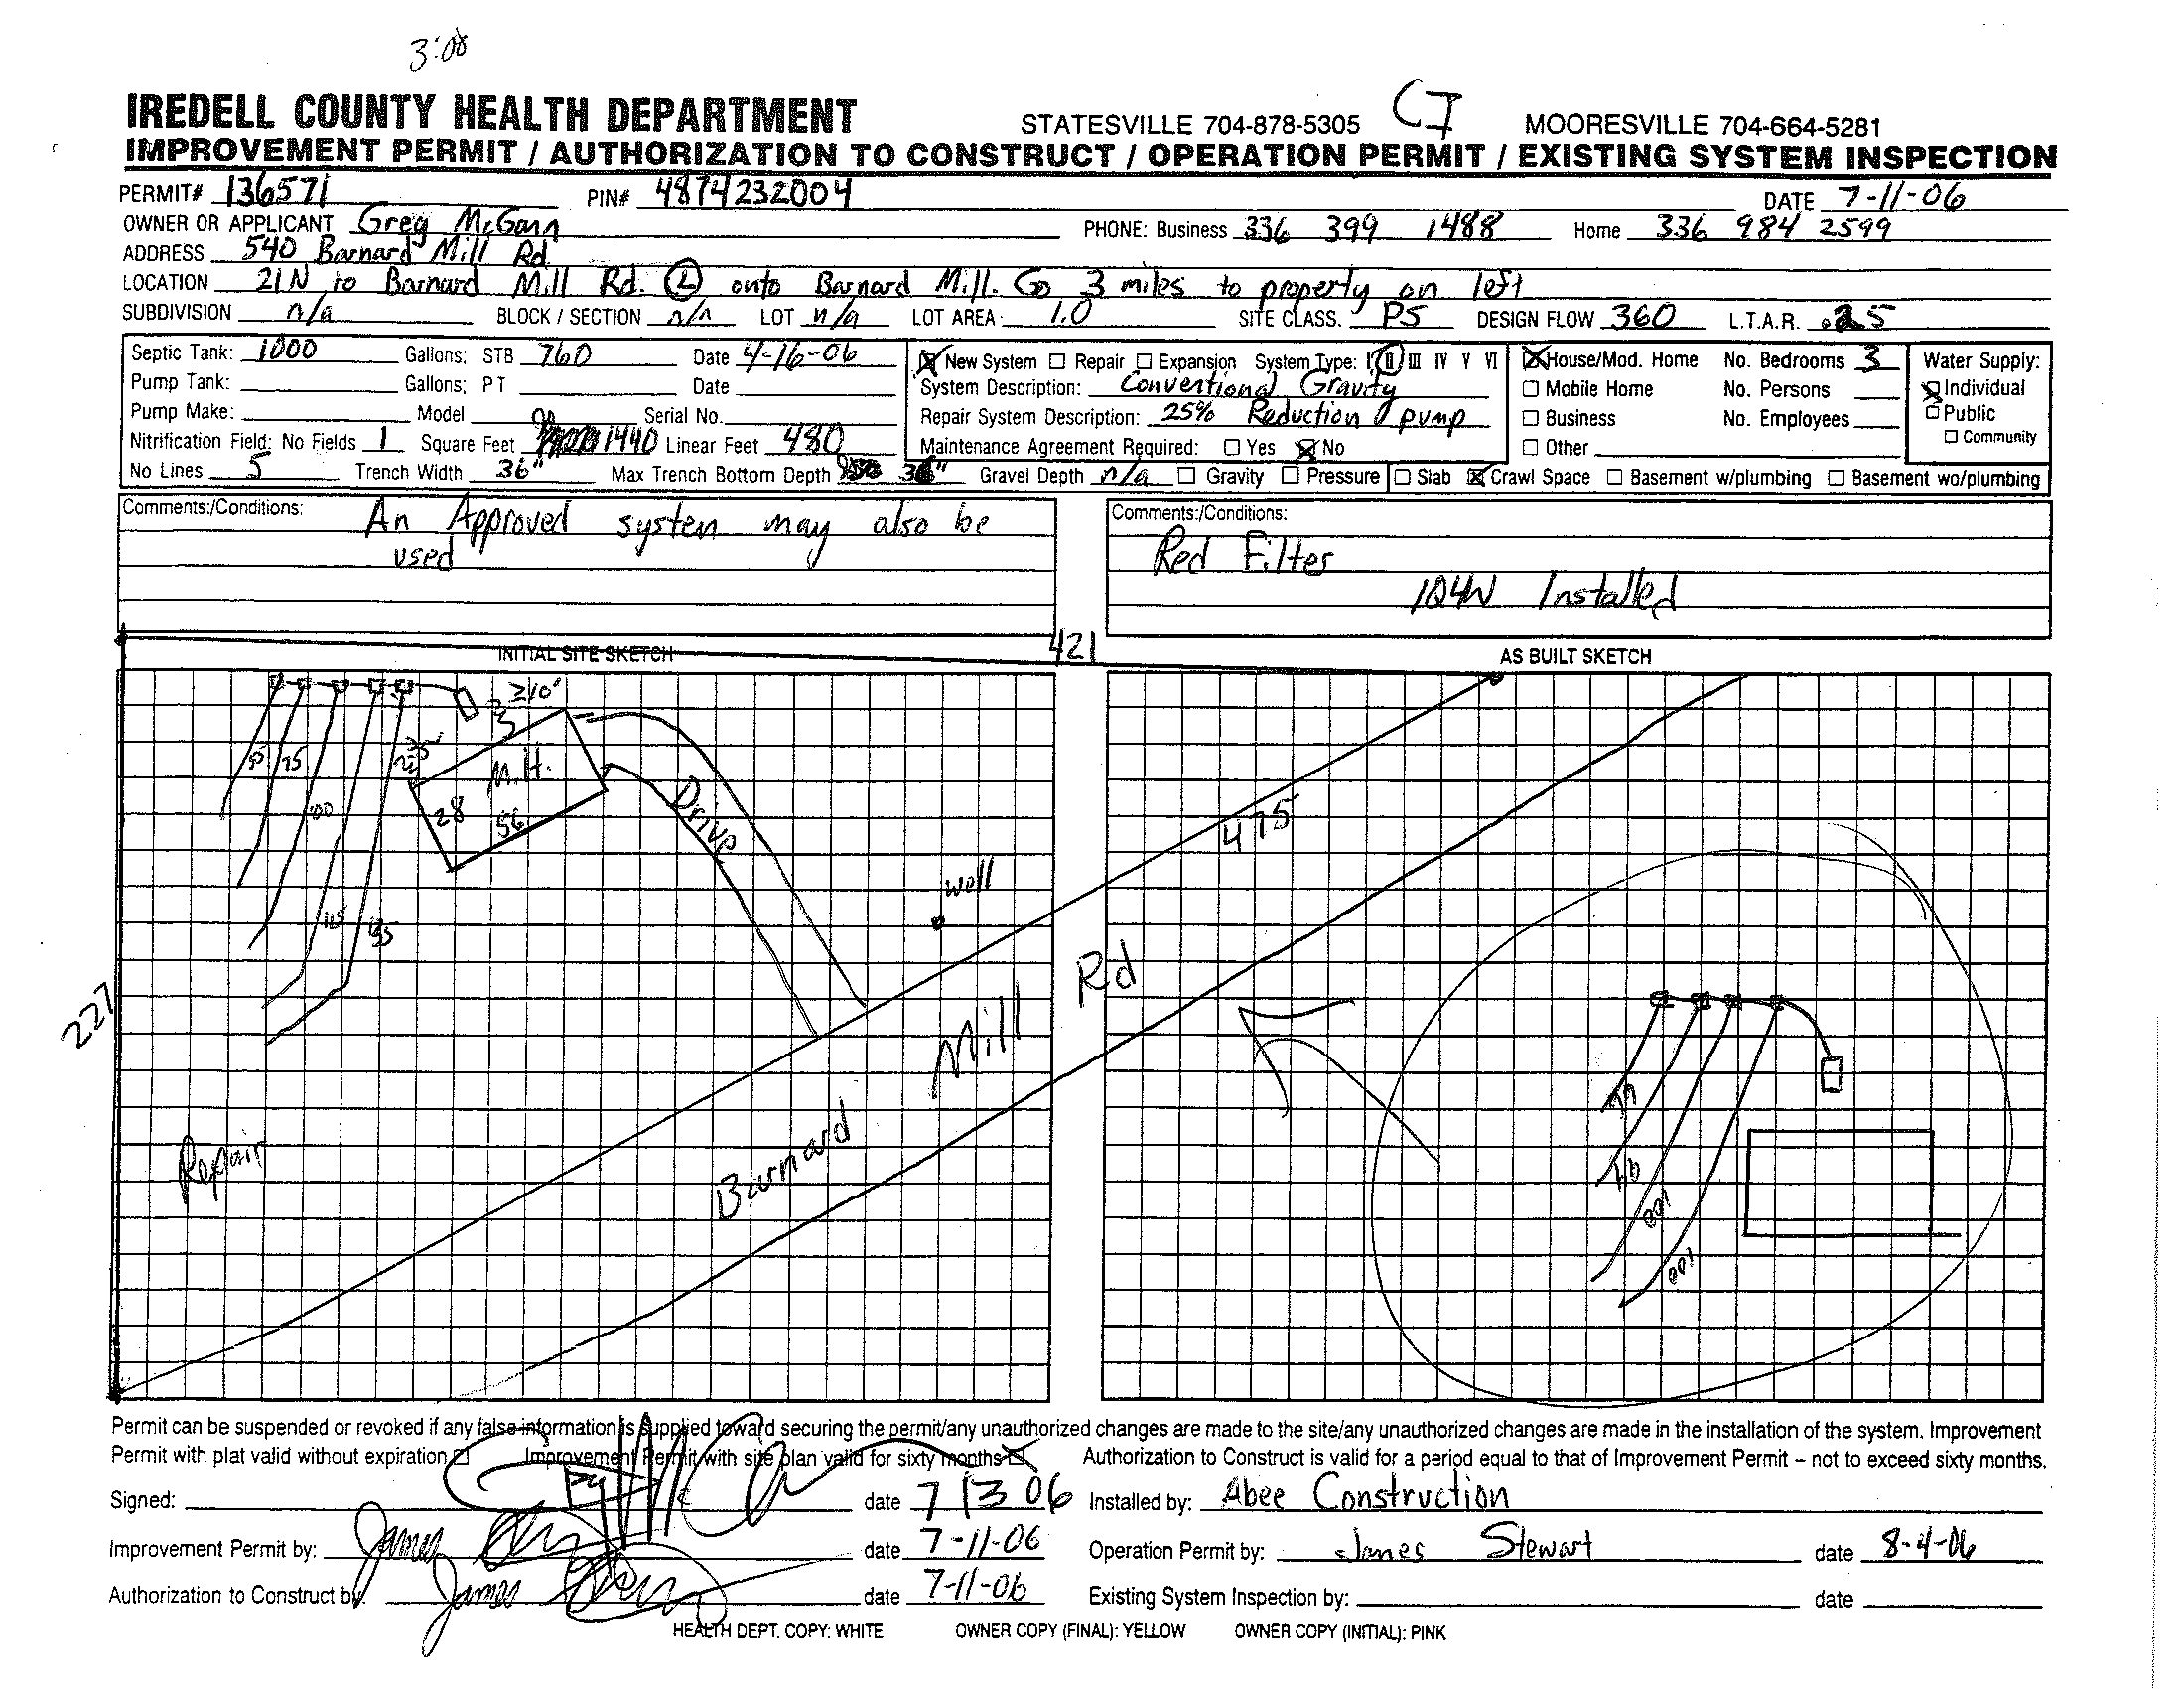 3:00
IREDELL COUNTY HEALTH DEPARTMENT STATESVILLE 704-878-5305 CI MOORESVILLE 704-664-5281
IMPROVEMENT PERMIT / AUTHORIZATION TO CONSTRUCT / OPERATION PERMIT / EXISTING SYSTEM INSPECTION
PERMIT# 136571 PIN# 4874232004 DATE 7-11-06
OWNER OR APPLICANT Greg McGann PHONE: Business 336 399 1488 Home 336 984 2599
ADDRESS 540 Barnard Mill Rd
LOCATION 21N to Barnard Mill Rd. L onto Barnard Mill. Go 3 miles to property on left
SUBDIVISION n/a BLOCK / SECTION n/a LOT n/a LOT AREA: 1.0 SITE CLASS. PS DESIGN FLOW 360 L.T.A.R. .25
Septic Tank: 1000 Gallons: STB 760 Date 4-16-06 New System Repair Expansion System Type: I II III IV V VI House/Mod. Home No. Bedrooms 3 Water Supply:
Pump Tank: Gallons: PT Date System Description: Conventional Gravity Mobile Home No. Persons Individual
Pump Make: Model Serial No. Repair System Description: 25% Reduction pump Business No. Employees Public
Nitrification Field: No Fields 1 Square Feet 1440 Linear Feet 480 Maintenance Agreement Required: Yes No Other Community
No Lines 5 Trench Width 36" Max Trench Bottom Depth 36" Gravel Depth n/a Gravity Pressure Slab Crawl Space Basement w/plumbing Basement wo/plumbing
Comments:/Conditions: An Approved system may also be
used
Comments:/Conditions:
Red Filter
IQ4W Installed
INITIAL SITE SKETCH 421 AS BUILT SKETCH
≥10'
75
M.H.
28 56
Drive
475
100
well
115 135
Rd
227
Mill
Barnard
Repair
77
91
100
100
Permit can be suspended or revoked if any false information is supplied toward securing the permit/any unauthorized changes are made to the site/any unauthorized changes are made in the installation of the system. Improvement
Permit with plat valid without expiration Improvement Permit with site plan valid for sixty months Authorization to Construct is valid for a period equal to that of Improvement Permit – not to exceed sixty months.
Signed: date 7 13 06 Installed by: Abee Construction
Improvement Permit by: James date 7-11-06 Operation Permit by: James Stewart date 8-4-06
Authorization to Construct by: James date 7-11-06 Existing System Inspection by: date
HEALTH DEPT. COPY: WHITE OWNER COPY (FINAL): YELLOW OWNER COPY (INITIAL): PINK